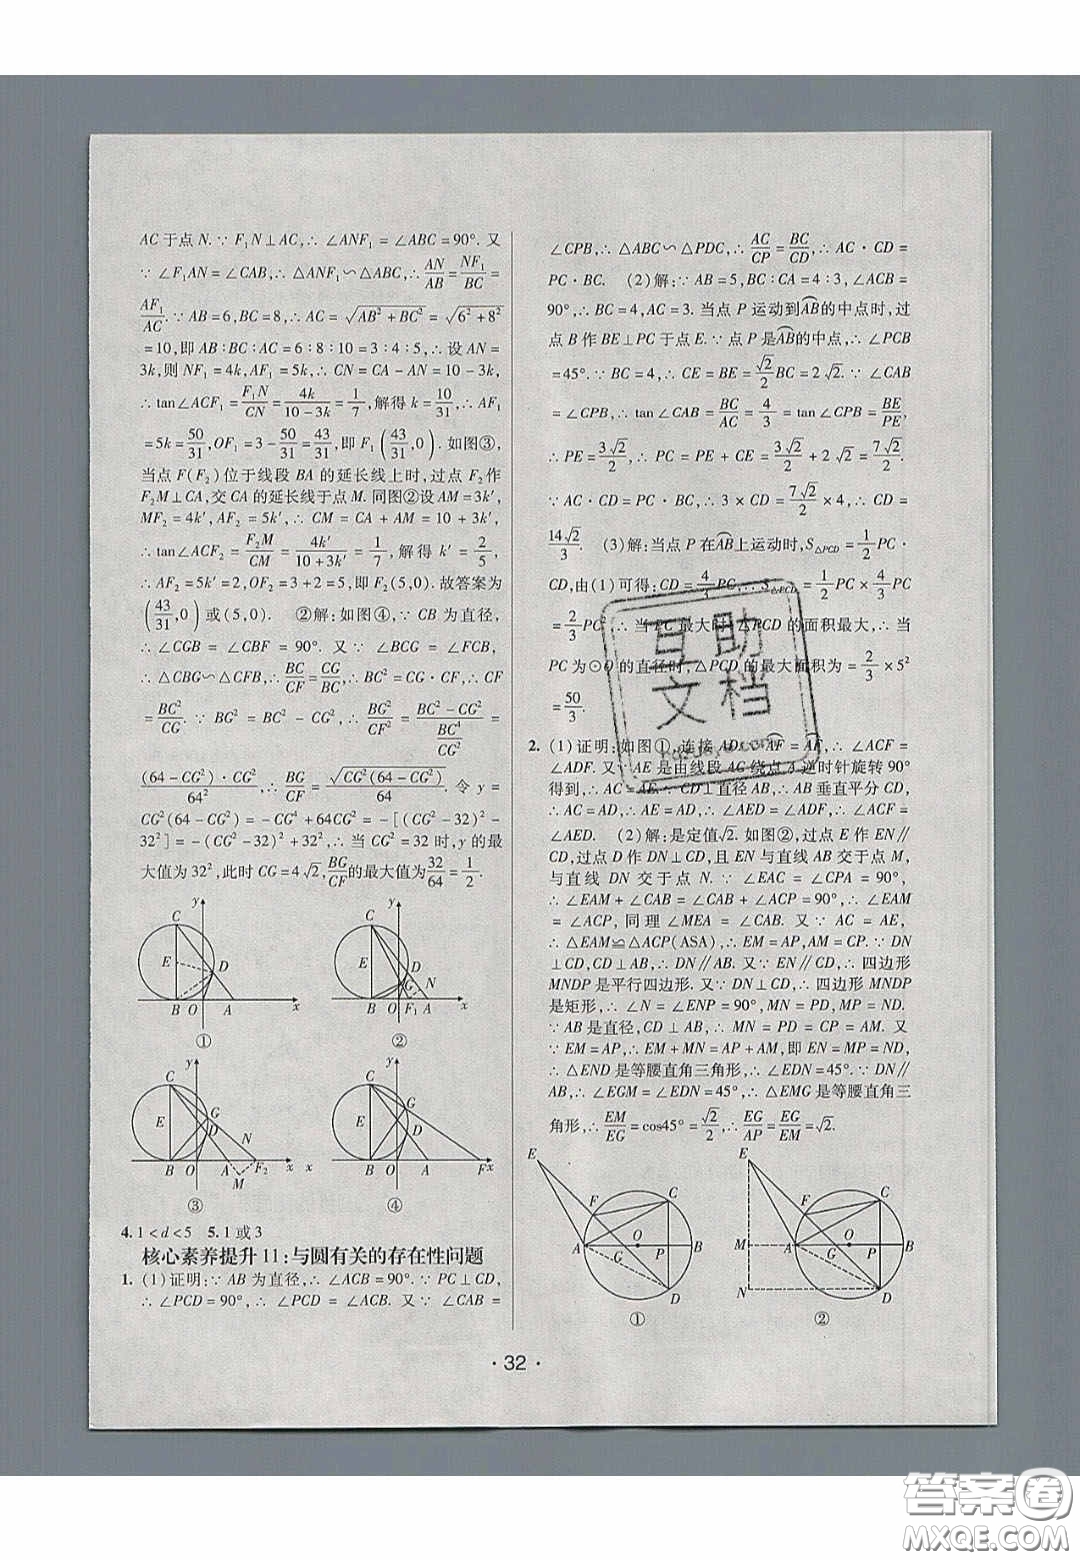 AC于点N.∵F₁N⊥AC,∴∠ANF₁=∠ABC=90°.又
∵∠F₁AN=∠CAB,∴△ANF₁∽△ABC,∴AN/AB=NF₁/BC=
AF₁/AC.∵AB=6,BC=8,∴AC=√(AB²+BC²)=√(6²+8²)
=10,即AB∶BC∶AC=6∶8∶10=3∶4∶5,∴设AN=
3k,则NF₁=4k,AF₁=5k,∴CN=CA-AN=10-3k,
∴tan∠ACF₁=F₁N/CN=4k/(10-3k)=1/7,解得k=10/31,∴AF₁
=5k=50/31,OF₁=3-50/31=43/31,即F₁(43/31,0).如图③,
当点F(F₂)位于线段BA的延长线上时,过点F₂作
F₂M⊥CA,交CA的延长线于点M.同图②设AM=3k′,
MF₂=4k′,AF₂=5k′,∴CM=CA+AM=10+3k′,
∴tan∠ACF₂=F₂M/CM=4k′/(10+3k′)=1/7,解得k′=2/5,
∴AF₂=5k′=2,OF₂=3+2=5,即F₂(5,0).故答案为
(43/31,0)或(5,0). ②解:如图④,∵CB为直径,
∴∠CGB=∠CBF=90°.又∵∠BCG=∠FCB,
∴△CBG∽△CFB,∴BC/CF=CG/BC,∴BC²=CG·CF,∴CF
=BC²/CG.∵BG²=BC²-CG²,∴BG²/CF²=(BC²-CG²)/(BC⁴/CG²)=
(64-CG²)·CG²/64²,∴BG/CF=√(CG²(64-CG²))/64.令y=
CG²(64-CG²)=-CG⁴+64CG²=-[(CG²-32)²-
32²]=-(CG²-32)²+32²,∴当CG²=32时,y的最
大值为32²,此时CG=4√2,BG/CF的最大值为32/64=1/2.
y C E D B O A x
①
y C E D N G B O F₁ A x
②
y C E G D N B O A F₂ x M
③
y C E G D x B O A F x
④
4.1<d<5 5.1或3
核心素养提升11:与圆有关的存在性问题
1.(1)证明:∵AB为直径,∴∠ACB=90°.∵PC⊥CD,
∴∠PCD=90°,∴∠PCD=∠ACB.又∵∠CAB=
∠CPB,∴△ABC∽△PDC,∴AC/CP=BC/CD,∴AC·CD=
PC·BC. (2)解:∵AB=5,BC∶CA=4∶3,∠ACB=
90°,∴BC=4,AC=3.当点P运动到AB的中点时,过
点B作BE⊥PC于点E.∵点P是AB的中点,∴∠PCB
=45°.∵BC=4,∴CE=BE=√2/2BC=2√2.∵∠CAB
=∠CPB,∴tan∠CAB=BC/AC=4/3=tan∠CPB=BE/PE,
∴PE=3√2/2,∴PC=PE+CE=3√2/2+2√2=7√2/2.
∵AC·CD=PC·BC,∴3×CD=7√2/2×4,∴CD=
14√2/3. (3)解:当点P在AB上运动时,S△PCD=1/2PC·
CD,由(1)可得:CD=4/3PC,∴S△PCD=1/2PC×4/3PC
=2/3PC²,∴当PC最大时,△PCD的面积最大,∴当
PC为⊙O的直径时,△PCD的最大面积为=2/3×5²
=50/3.
2.(1)证明:如图①,连接AD.∵AF=AF,∴∠ACF=
∠ADF.又∵AE是由线段AC绕点A逆时针旋转90°
得到,∴AC=AE.∵CD⊥直径AB,∴AB垂直平分CD,
∴AC=AD,∴AE=AD,∴∠AED=∠ADF,∴∠ACF=
∠AED. (2)解:是定值√2.如图②,过点E作EN∥
CD,过点D作DN⊥CD,且EN与直线AB交于点M,
与直线DN交于点N.∵∠EAC=∠CPA=90°,
∴∠EAM+∠CAB=∠CAB+∠ACP=90°,∴∠EAM
=∠ACP,同理∠MEA=∠CAB.又∵AC=AE,
∴△EAM≌△ACP(ASA),∴EM=AP,AM=CP.∵DN
⊥CD,AB⊥CD,∴DN∥AB.又∵EN∥CD,∴四边形
MNDP是平行四边形.又∵DN⊥CD,∴四边形MNDP
是矩形,∴∠N=∠ENP=90°,MN=PD,MP=ND.
∵AB是直径,CD⊥AB,∴MN=PD=CP=AM.又
∵EM=AP,∴EM+MN=AP+AM,即EN=MP=ND,
∴△END是等腰直角三角形,∴∠EDN=45°.∵DN∥
AB,∴∠EGM=∠EDN=45°,∴△EMG是等腰直角三
角形,∴EM/EG=cos45°=√2/2,∴EG/AP=EG/EM=√2.
E F C A G O P B D
①
E F C M A G O P B N D
②
·32·
互助
文档
答案卷
MXQE.COM